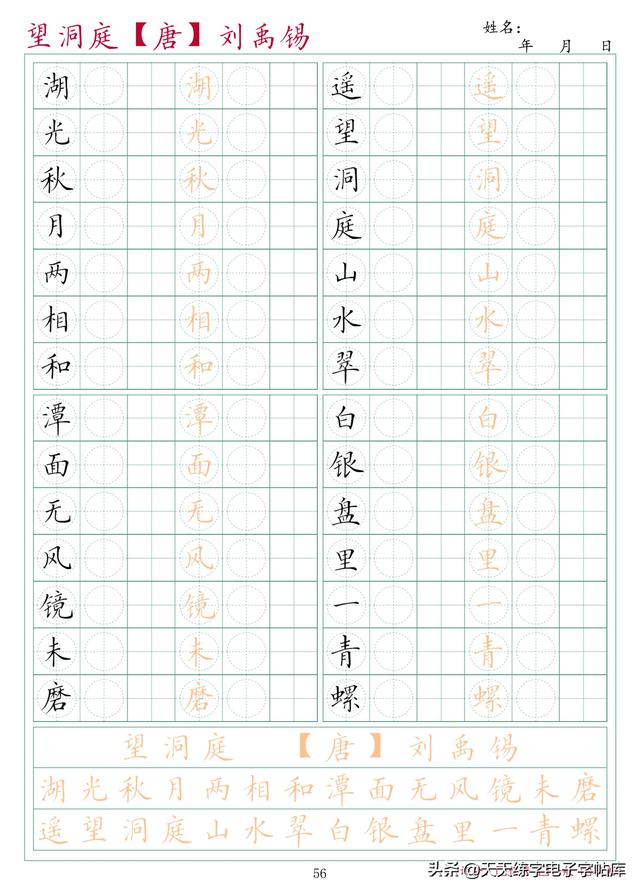 望洞庭【唐】刘禹锡
姓名：
年 月 日
湖光秋月两相和
湖光秋月两相和
遥望洞庭山水翠
遥望洞庭山水翠
潭面无风镜未磨
潭面无风镜未磨
白银盘里一青螺
白银盘里一青螺
望洞庭 【唐】刘禹锡
湖光秋月两相和潭面无风镜未磨
遥望洞庭山水翠白银盘里一青螺
56
头条@天天练字电子字帖库